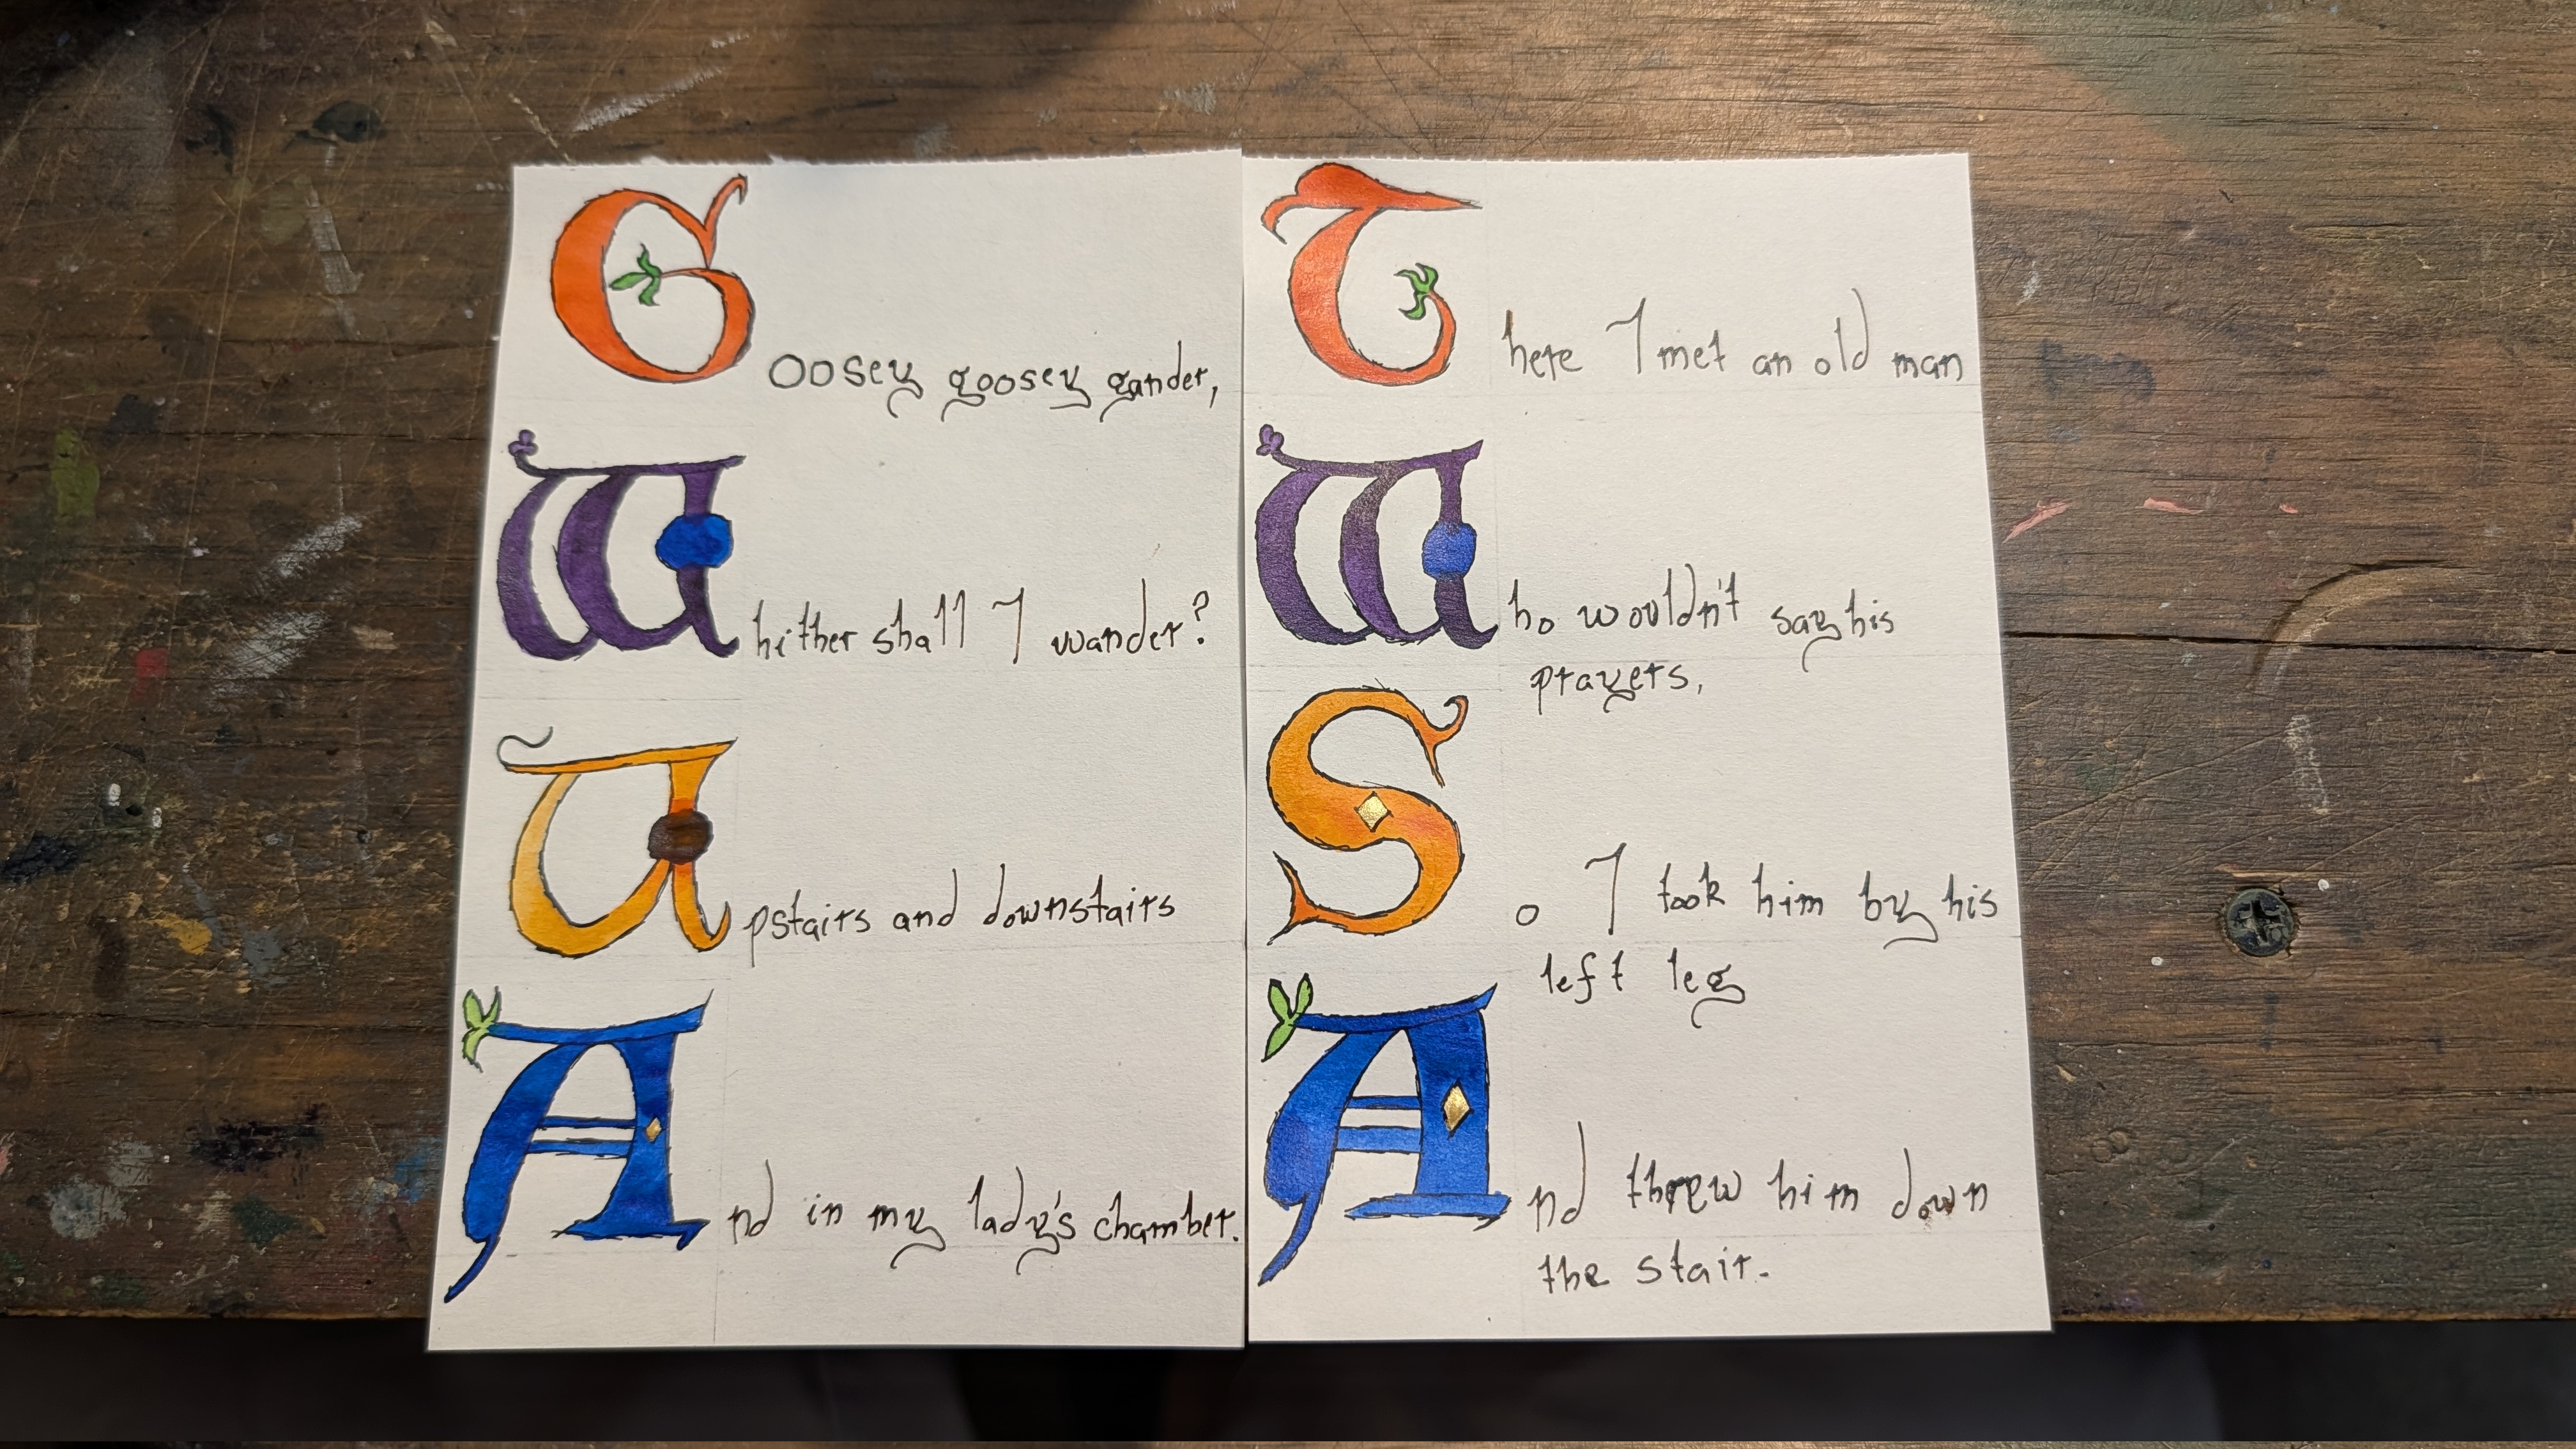 Goosey goosey gander,
Whither shall I wander?
Upstairs and downstairs
And in my lady's chamber.
There I met an old man
Who wouldn't say his
prayers,
So I took him by his
left leg
And threw him down
the stair.